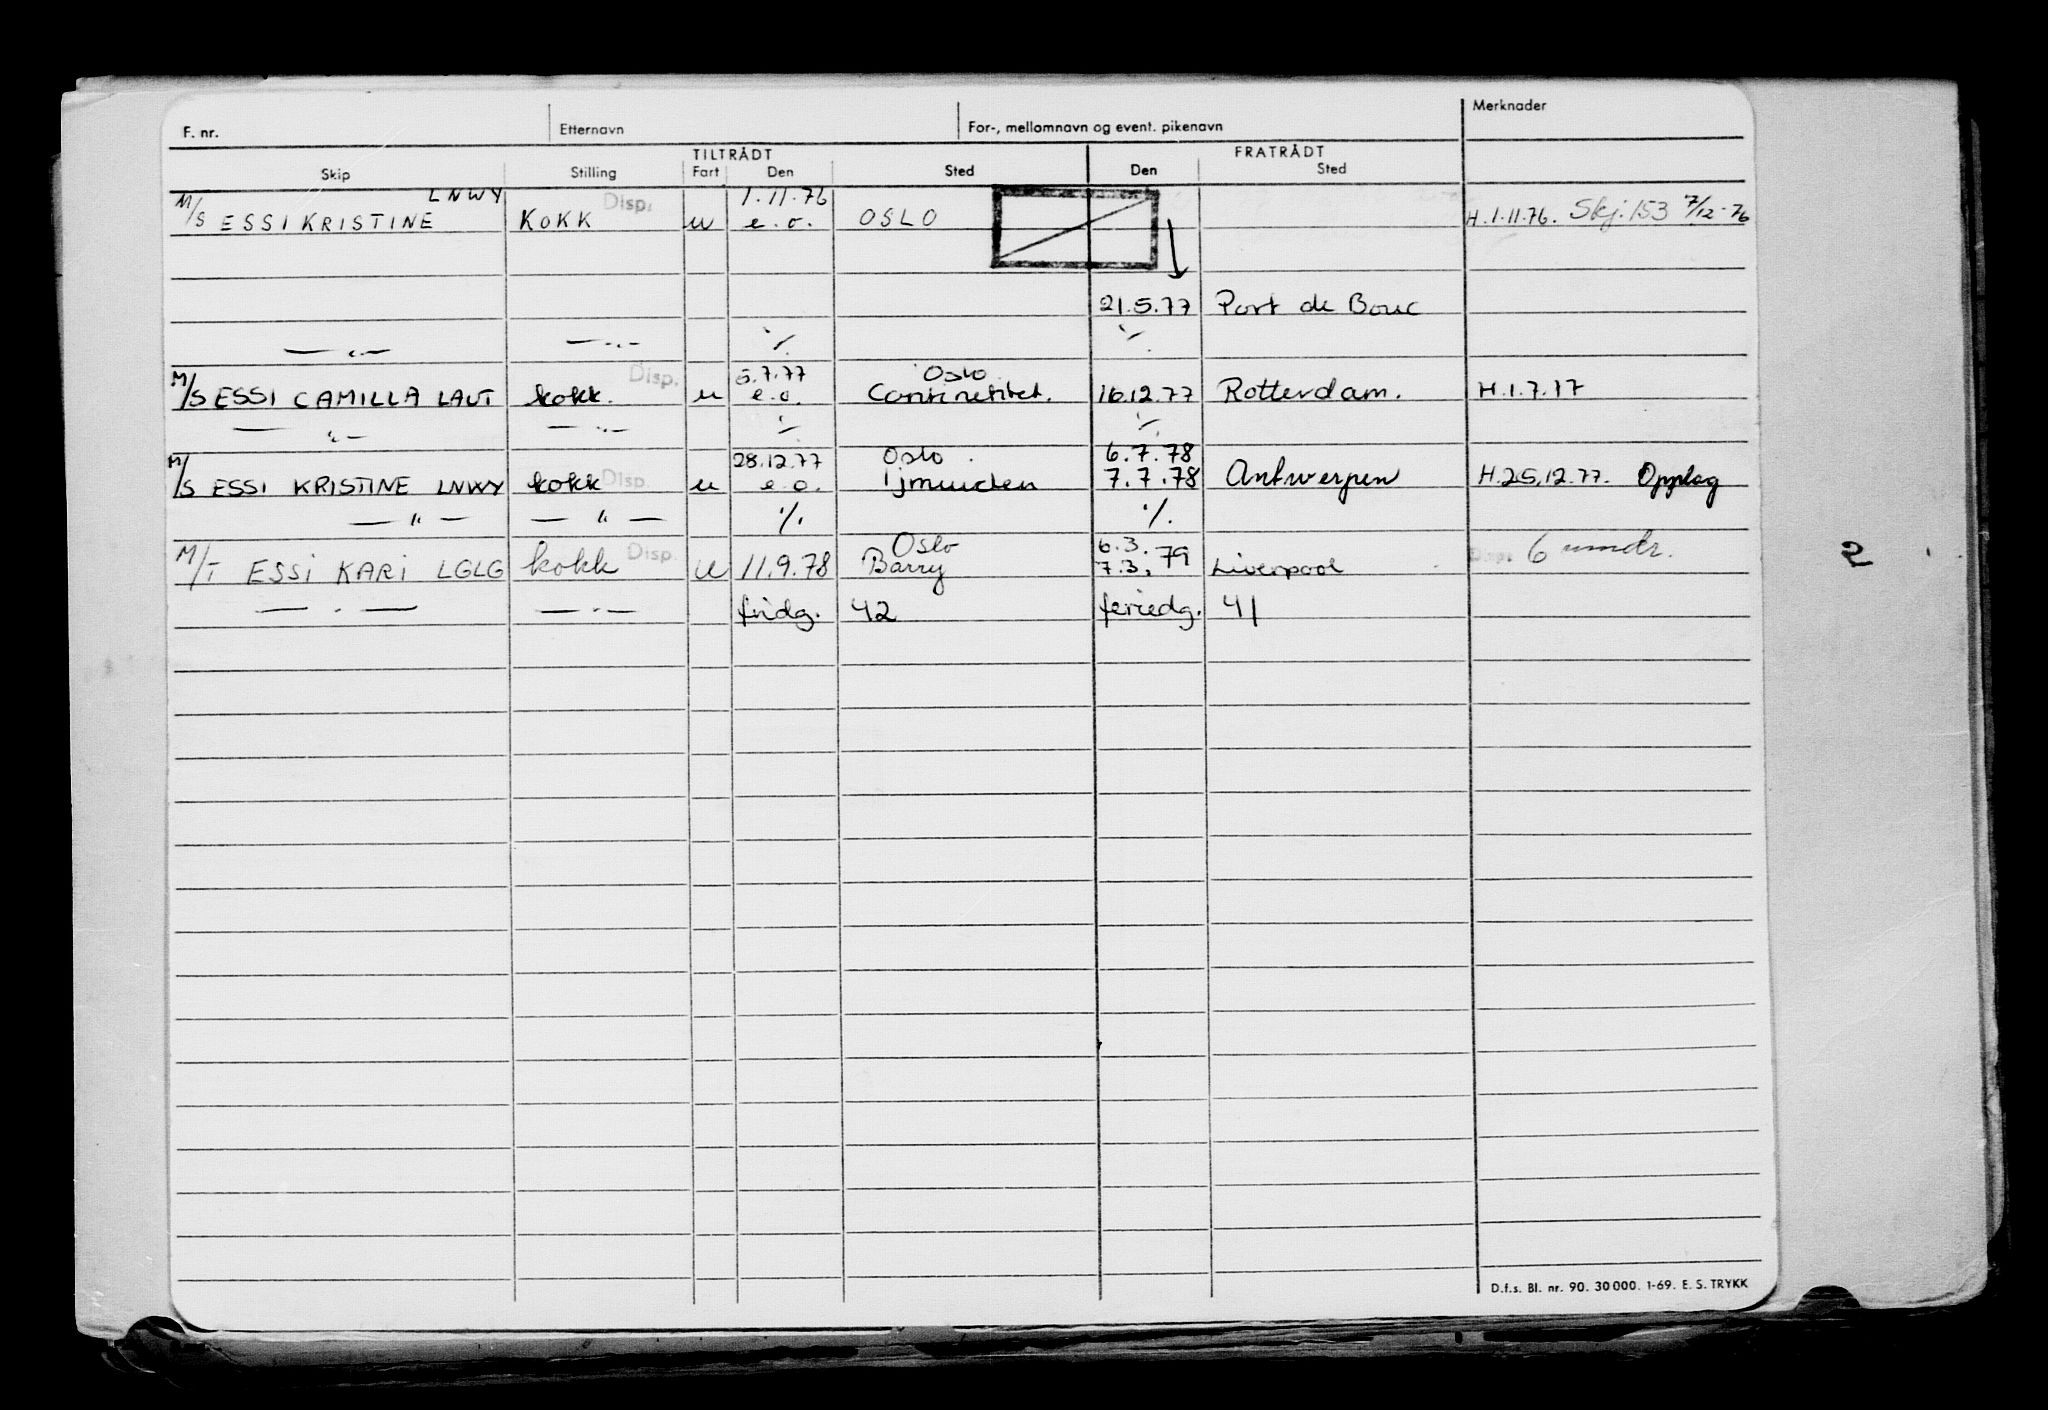 F. nr. Etternavn For-, mellomnavn og event. pikenavn Merknader
TILTRÅDT FRATRÅDT
Skip Stilling Fart Den Sted Den Sted
LNWY Disp. 1.11.76
M/S ESSI KRISTINE KOKK u e.o. OSLO H.1.11.76. Skj.153 7/12-76
21.5.77 Port de Bouc
— " — — " — % %
Disp. 5.7.77 Oslo
M/S ESSI CAMILLA LAUT kokk. u e.o. 16.12.77 Rotterdam. H.1.7.77
— " — — " — % %
28.12.77 Oslo 6.7.78
M/S ESSI KRISTINE LNWY kokk Disp. u e.o. Ijmuiden 7.7.78 Antwerpen H.25.12.77. Opplag
— " — — " — % %
Oslo 6.3.79
M/T ESSI KARI LGLG kokk Disp. u 11.9.78 Barry 7.3. Liverpool Disp. 6 mndr.
— " — — " — fridg. 42 feriedg. 41
2
D.f.s. Bl. nr. 90. 30 000. 1-69. E. S. TRYKK